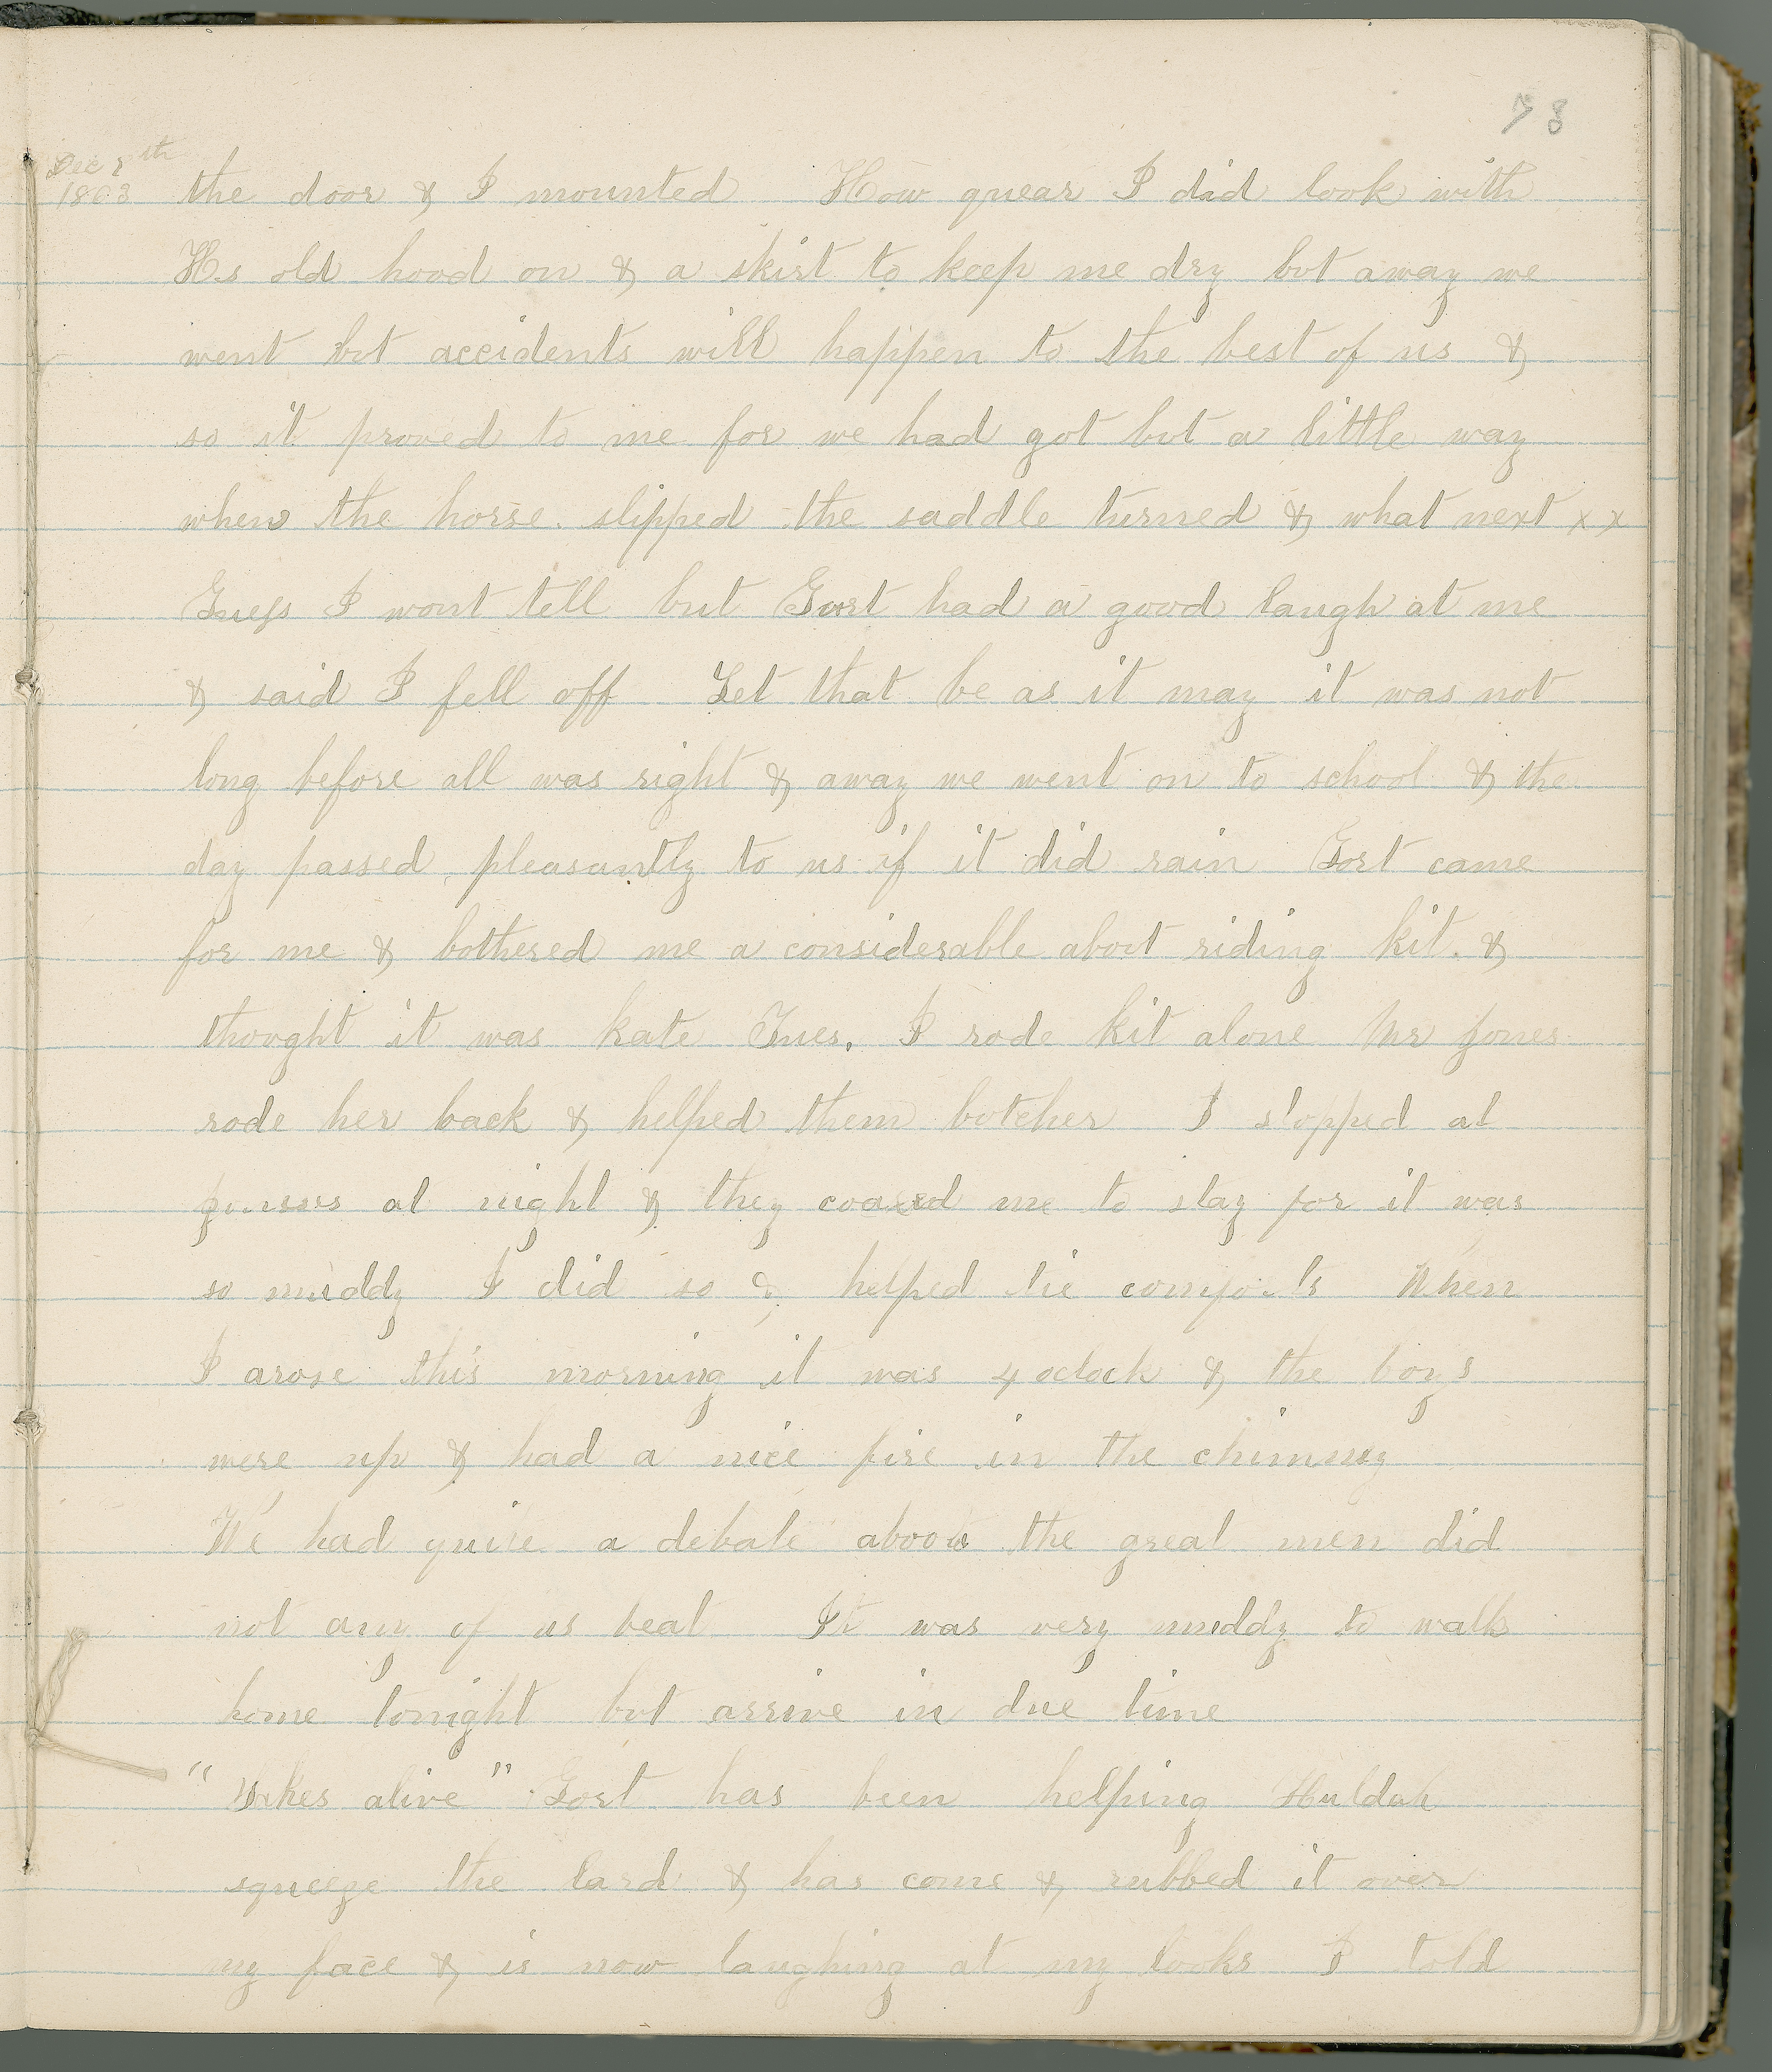 73
Dec 8th
1863
the door & I mounted How quear I did look with
Hs old hood on & a skirt to keep me dry but away we
went but accidents will happen to the best of us &
so it proved to me for we had got but a little way
when the horse slipped the saddle turned & what next x x
Guess I wont tell but Gort had a good laugh at me
& said I fell off Let that be as it may it was not
long before all was right & away we went on to school & the
day passed pleasantly to us if it did rain Gort came
for me & bothered me a considerable about riding kit. &
thought it was kate Tues. I rode kit alone Mr Jones
rode her back & helped them butcher I stopped at
at night & they coaxed me to stay for it was
so muddy I did so & helped tie comforts When
I arose this morning it was 4 oclock & the boys
were up & had a nice fire in the chimney
We had quite a debate about the great men did
not any of us beat It was very muddy to walk
home tonight but arrive in due time
"Sakes alive" Gort has been helping Huldah
squeeze the lard & has come & rubbed it over
my face & is now laughing at my looks I told